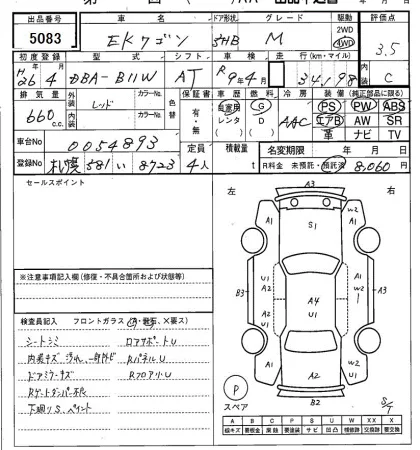 出品番号 車名 ドア形状 グレード 駆動 評価点
5083 EKワゴン 5HB M 2WD 4WD 3.5
初度登録 型式 シフト 車検 走行(km・マイル) 内装
H26年4月 DBA-B11W AT R9年4月 34,198 C
排気量 外装 カラーNo. 色替 保証書 車歴 燃料 冷房 装備(純正部品に限る)
660c.c. レッド 有・無 自家用 レンタ G D AAC PS PW ABS
内装 カラーNo. エアB AW SR
革 ナビ TV
車台No 0054893 定員 積載量 名変期限 年 月 日
登録No 札幌581い8723 4人 t R料金 未預託・預託済 8,060円
セールスポイント
左 右
A3
A1 S1 W2 A1
U1 A2 U1 A1
B3 A4 U1 W2 A3
A1 A2 U1 W2 A1
B2
P
スペア
S/T
※注意事項記入欄(修復・不具合箇所および状態等)
検査員記入 フロントガラス(A・飛石、X要ス)
シートシミ ロアサポートU
内装キズ、汚れ、一部外ビ RパネルU
ドアミラーキズ RフロアU
Rゲートダンパー不良
下廻りS、ペイント
A B C P S U W X XX
線キズ 要板金 腐蝕 要塗装 サビ 凹凸 補修跡 交換跡 要交換